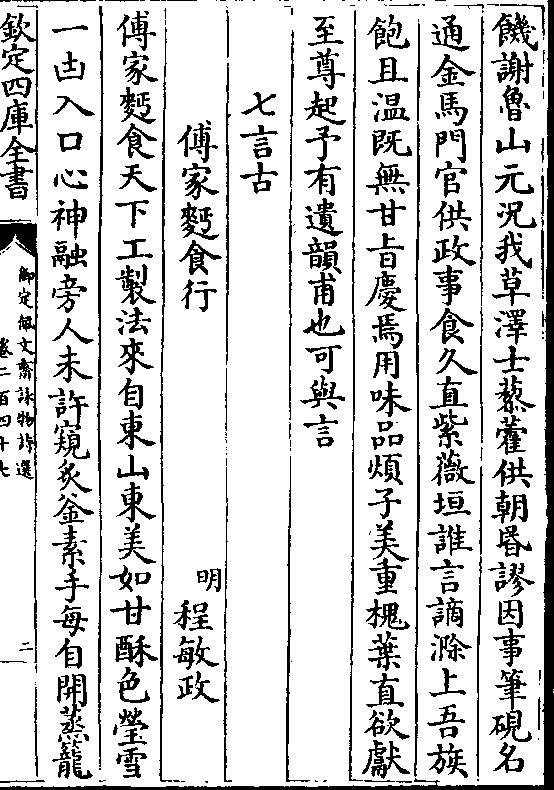 饑謝魯山元況我草澤士藜藿供朝昏謬因事筆硯名
通金馬門官供政事食久直紫薇垣誰言謫滁上吾族
飽且温既無甘旨慶焉用味品煩子美重槐葉直欲獻
至尊起予有遺韻甫也可與言
七言古
傅家麪食行
明程敏政
傅家麪食天下工製法來自東山東美如甘酥色瑩雪
一由入口心神融旁人未許窺炙釜素手每自開蒸籠
欽定四庫全書
御定佩文齋詠物詩選
卷二百四十七
二